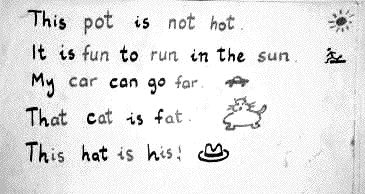 This pot is not hot.
It is fun to run in the sun.
My car can go far.
That cat is fat.
This hat is his!